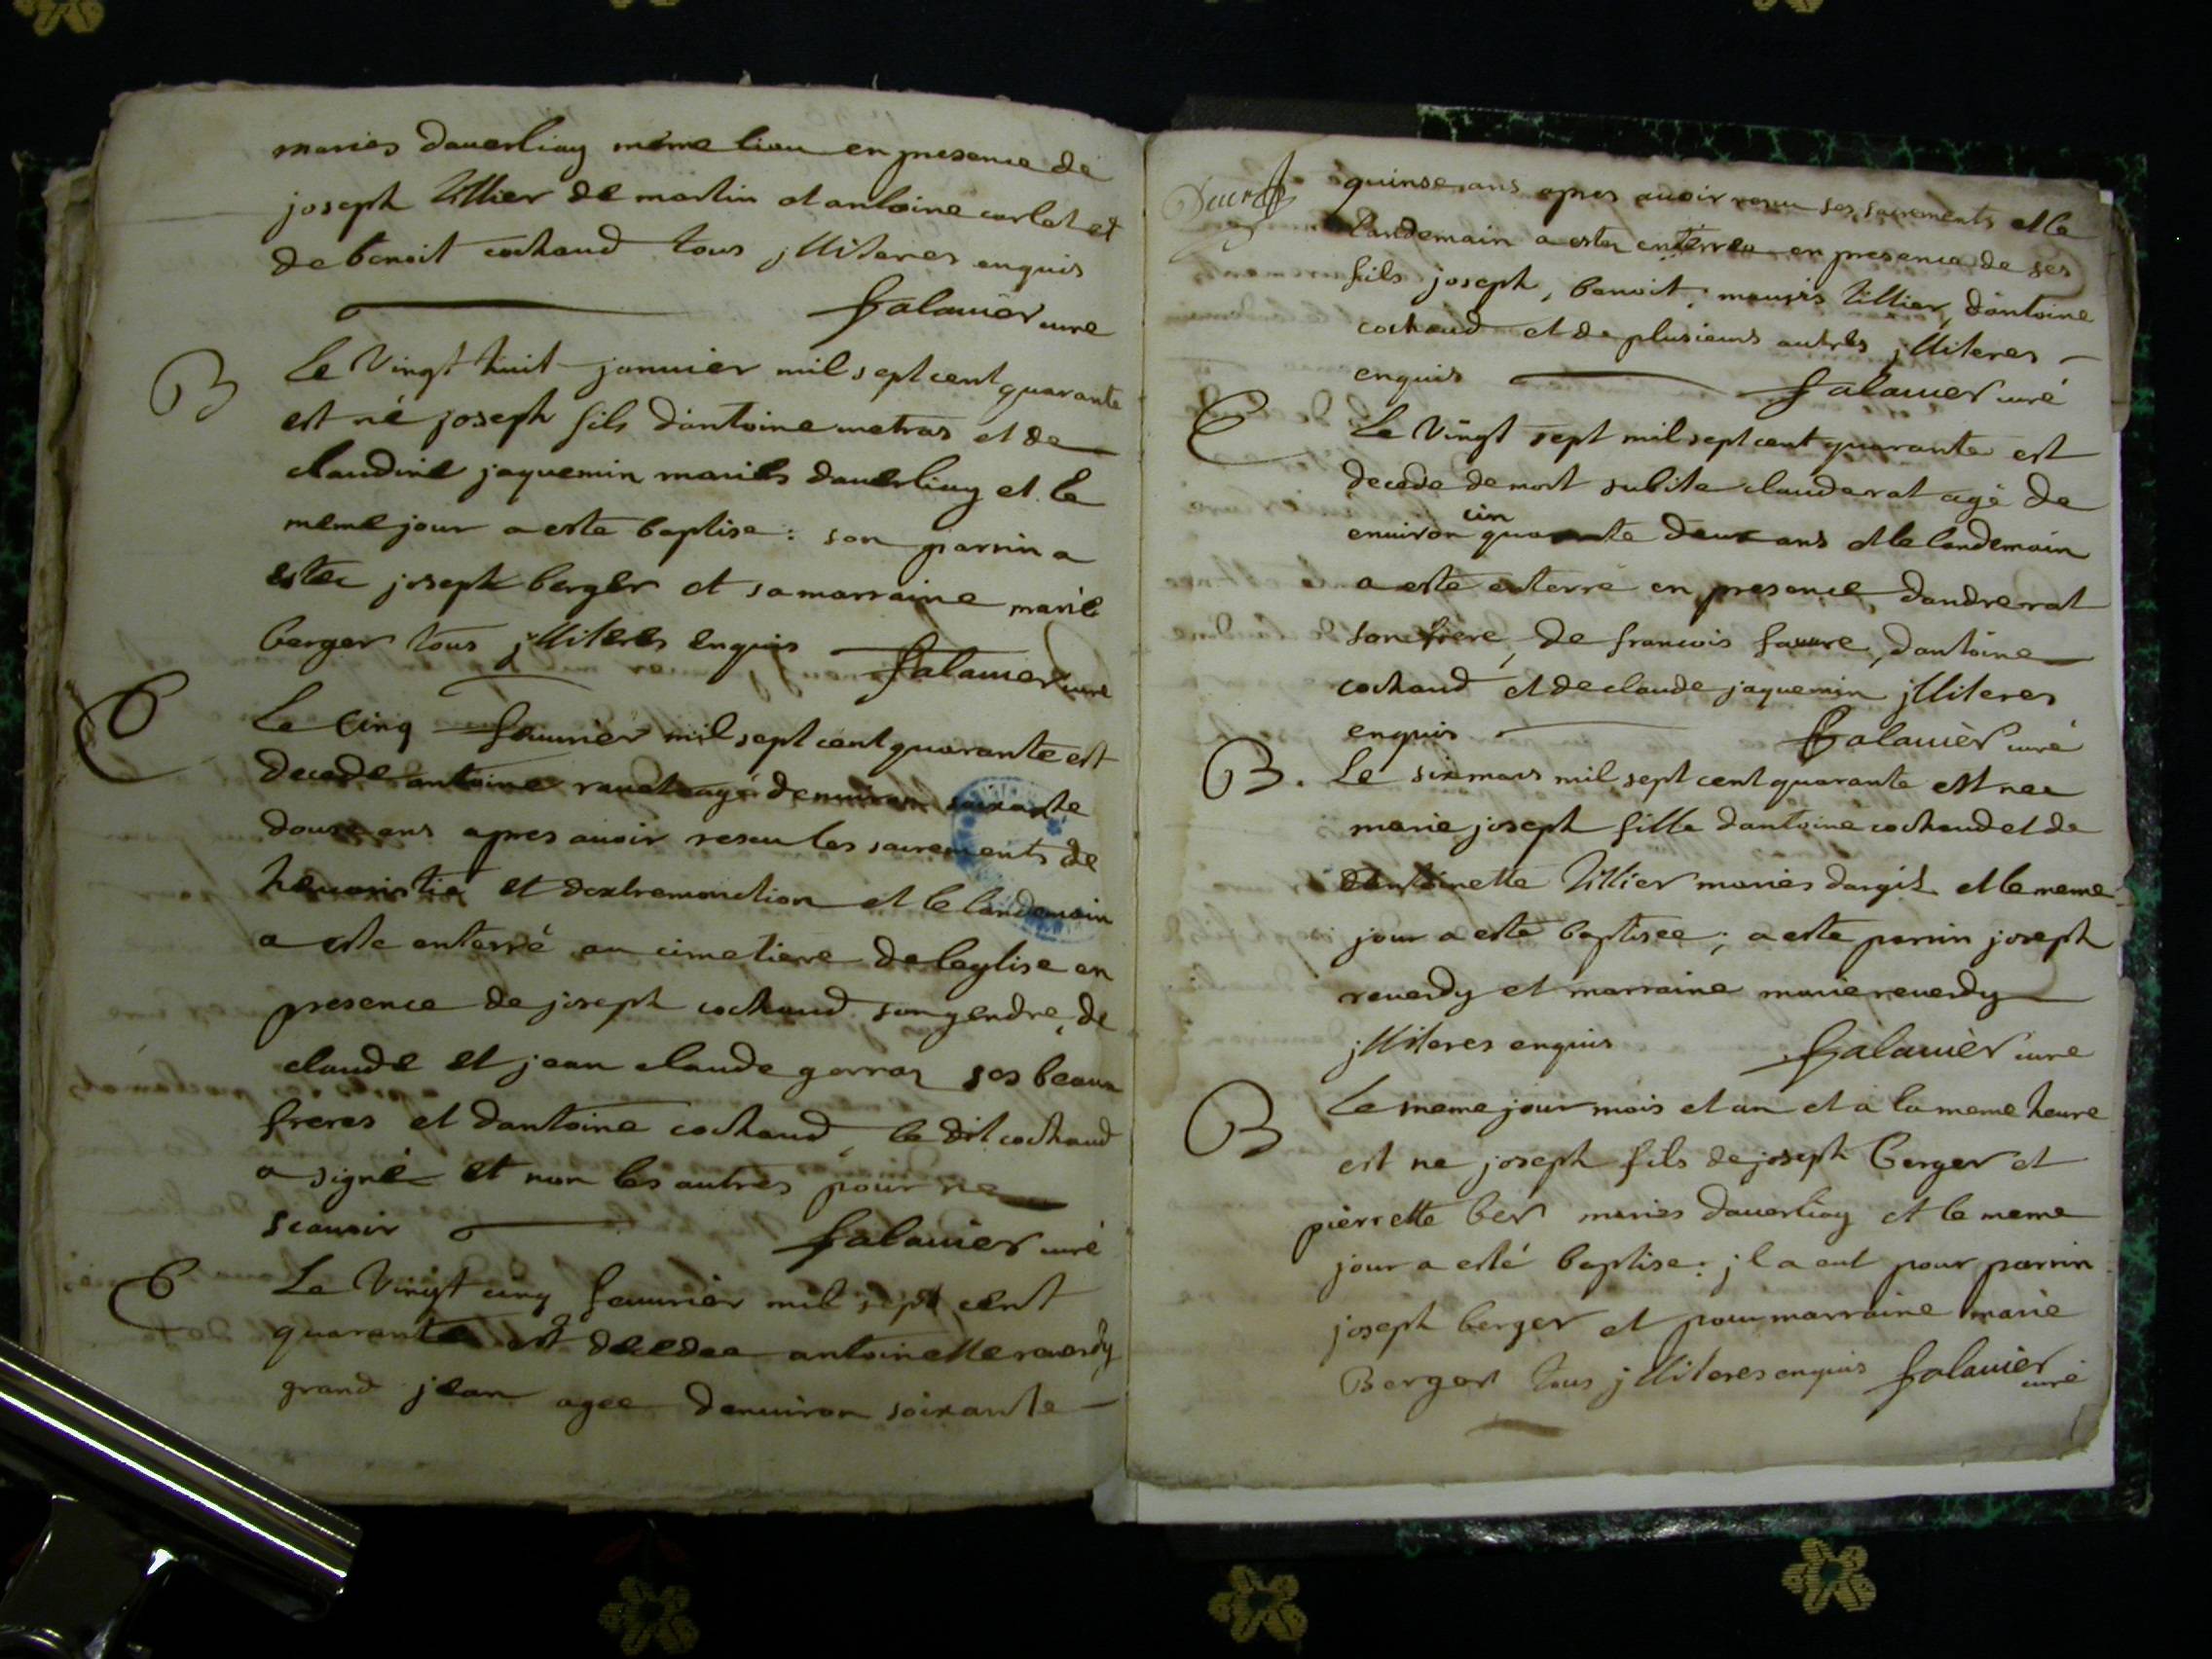 maries daverliay même lieu en presence de
joseph tillier de martin et antoine carlat et
de benoit cochaud tous jlliteres enquis
falavier curé
B
Le vingt huit janvier mil sept cent quarante
est né joseph fils dantoine metras et de
claudine jaquemin mariés daverliay et le
meme jour a esté baptise : son parrin a
estéz joseph berger et sa marraine marie
berger tous jlliteres enquis falavier curé
E
Le cinq fevvrier mil sept cent quarante est
decede antoine ravat agé denviron soixante
douse ans apres avoir reseu les sacrements de
heucaristie et dextremonction et le landemain
a esté enterré au cimetiere de leglise en
presence de joseph cochaud son gendre, de
claude et jean claude gorraz ses beaux
freres et dantoine cochaud, le dit cochaud
a signé et non les autres pour ne
scavoir falavier curé
E
Le vingt cinq fevvrier mil sept cent
quarante est decedee antoinette reverdy
grand jean agee denviron soixante
quinse ans apres avoir receu ses sacrements et le
landemain a estéz enterrée en presence de ses
fils joseph, benoit, mauris tillier, dantoine
cochaud et de plusieurs autres jlliteres
enquis falavier curé
E
Le vingt sept mil sept cent quarante est
decede de mort subite claude rat agé de
cin
environ quarante deux ans et le landemain
a esté enterré en presence, dandre rat
son frere, de francois favvre, dantoine
cochaud et de claude jaquemin jlliteres
enquis falavier curé
B. Le six mars mil sept cent quarante est nee
marie joseph fille dantoine cochaud et de
dantoinette tillier maries dargit et le meme
jour a esté baptisée ; a este parrin joseph
reverdy et marraine marie reverdy
jlliteres enquis falavier curé
B
Le meme jour mois et an et a la meme heure
est ne joseph fils de joseph berger et
pierrette ber maries daverliay et le meme
jour a esté baptise : jl a eut pour parrin
joseph berger et pour marraine marie
Berger tous jlliteres enquis falavier
curé